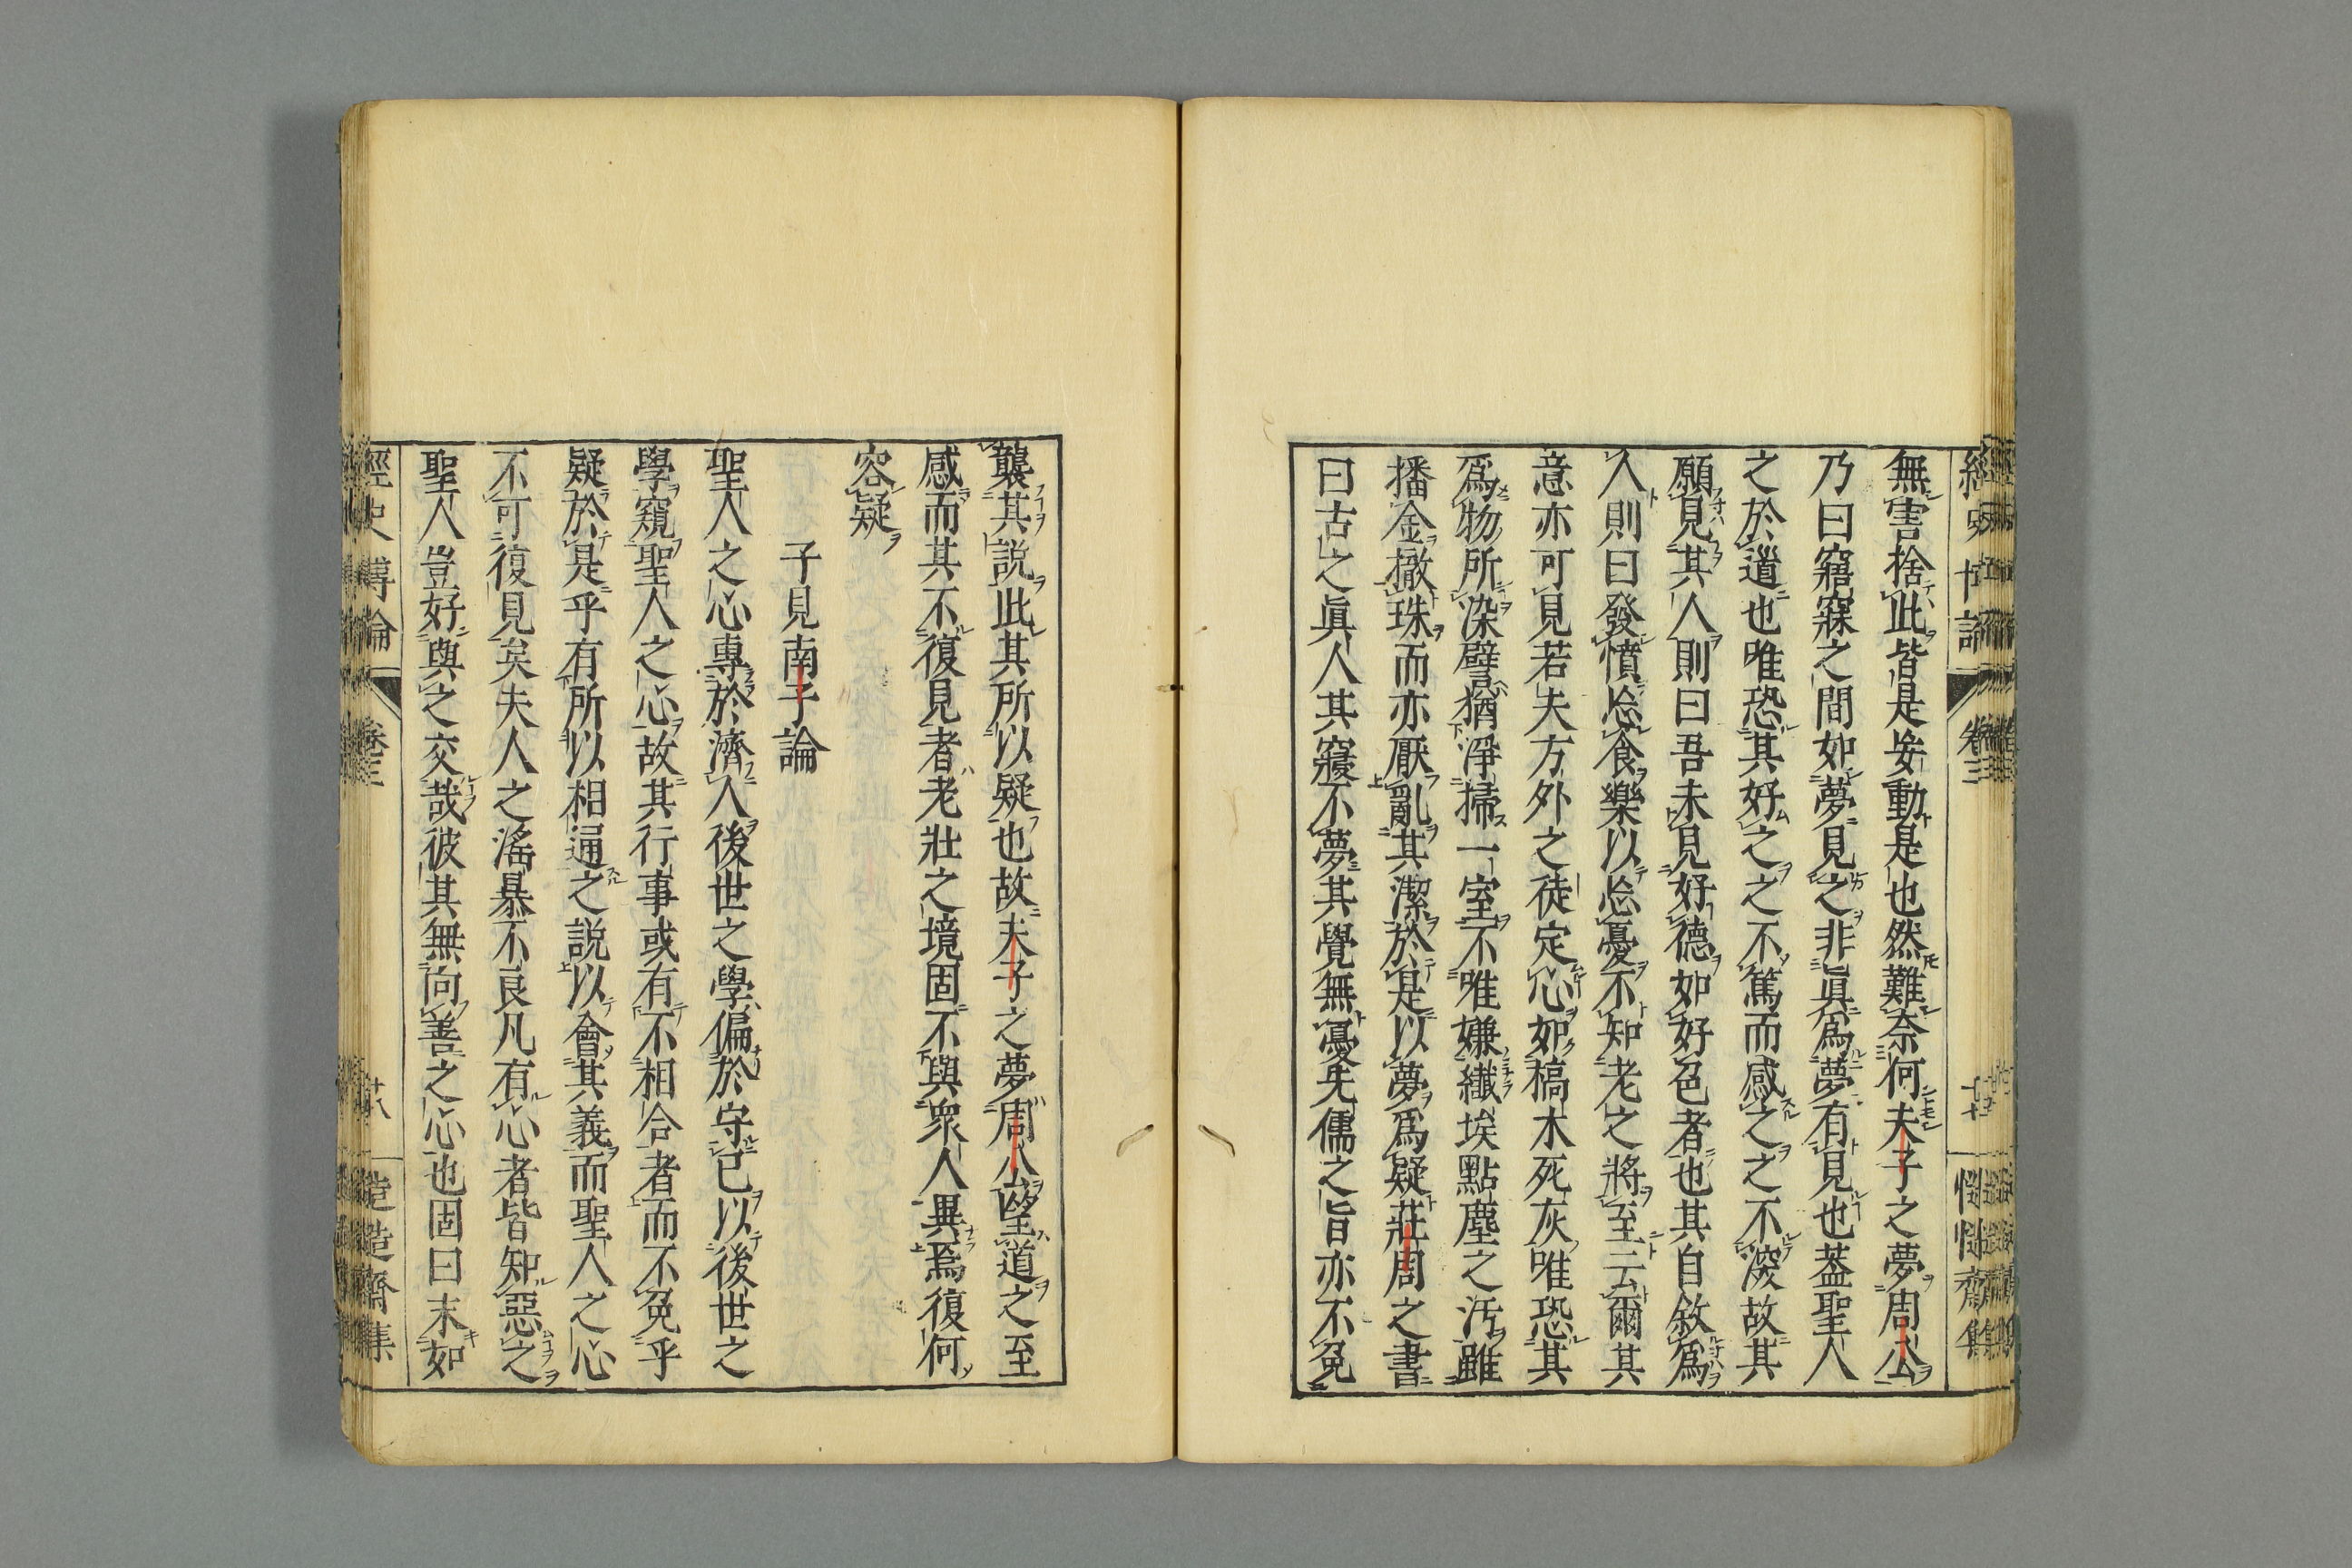 無害捨此皆是妄動是也然難奈何夫子之夢周公
乃曰寤寐之間如夢見之非眞爲夢有見也蓋聖人
之於道也唯恐其好之之不篤而感之之不深故其
願見其人則曰吾未見好德如好色者也其自敘爲
人則曰發憤忘食樂以忘憂不知老之將至云爾其
意亦可見若夫方外之徒定心如槁木死灰唯恐其
爲物所染譬猶淨掃一室不唯嫌纖埃點塵之汚雖
播金撒珠而亦厭亂其潔於是以夢爲疑莊周之書
曰古之眞人其寢不夢其覺無憂先儒之旨亦不免
襲其說此其所以疑也故夫子之夢周公望道之至
感而其不復見者老壯之境固不與衆人異焉復何
容疑
子見南子論
聖人之心專於濟人後世之學偏於守己以後世之
學窺聖人之心故其行事或有不相合者而不免乎
疑於是乎有所以相通之說以會其義而聖人之心
不可復見矣夫人之淫暴不良凡有心者皆知惡之
聖人豈好與之交哉彼其無向善之心也固曰末如
經史博論
卷三